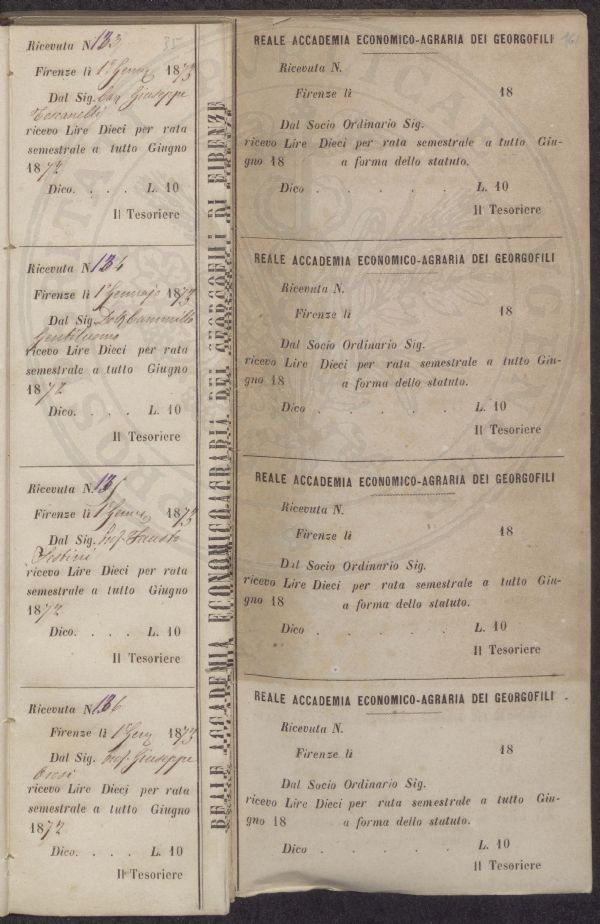 Ricevuta N. 133
35
Firenze lì 1° Genn 1873
Dal Sig. Cav Giuseppe
Toscanelli
ricevo Lire Dieci per rata
semestrale a tutto Giugno
1872
Dico. . . . L. 10
Il Tesoriere
Ricevuta N. 134
Firenze lì 1° Gennajo 1873
Dal Sig. Dott Cammillo
Gentiluomo
ricevo Lire Dieci per rata
semestrale a tutto Giugno
1872
Dico. . . . L. 10
Il Tesoriere
Ricevuta N. 135
Firenze lì 1° Genn 1873
Dal Sig. Prof. Fausto
Sestini
ricevo Lire Dieci per rata
semestrale a tutto Giugno
1872
Dico. . . . L. 10
Il Tesoriere
Ricevuta N. 136
Firenze lì 1° Genn 1873
Dal Sig. Prof. Giuseppe
Orosi
ricevo Lire Dieci per rata
semestrale a tutto Giugno
1872
Dico. . . . L. 10
Il Tesoriere
REALE ACCADEMIA ECONOMICO-AGRARIA DEI GEORGOFILI DI FIRENZE
REALE ACCADEMIA ECONOMICO-AGRARIA DEI GEORGOFILI
161
Ricevuta N.
Firenze lì 18
Dal Socio Ordinario Sig.
ricevo Lire Dieci per rata semestrale a tutto Giu-
gno 18 a forma dello statuto.
Dico . . . . . L. 10
Il Tesoriere
REALE ACCADEMIA ECONOMICO-AGRARIA DEI GEORGOFILI
Ricevuta N.
Firenze lì 18
Dal Socio Ordinario Sig.
ricevo Lire Dieci per rata semestrale a tutto Giu-
gno 18 a forma dello statuto.
Dico . . . . . L. 10
Il Tesoriere
REALE ACCADEMIA ECONOMICO-AGRARIA DEI GEORGOFILI
Ricevuta N.
Firenze lì 18
Dal Socio Ordinario Sig.
ricevo Lire Dieci per rata semestrale a tutto Giu-
gno 18 a forma dello statuto.
Dico . . . . . L. 10
Il Tesoriere
REALE ACCADEMIA ECONOMICO-AGRARIA DEI GEORGOFILI
Ricevuta N.
Firenze lì 18
Dal Socio Ordinario Sig.
ricevo Lire Dieci per rata semestrale a tutto Giu-
gno 18 a forma dello statuto.
Dico . . . . . L. 10
Il Tesoriere